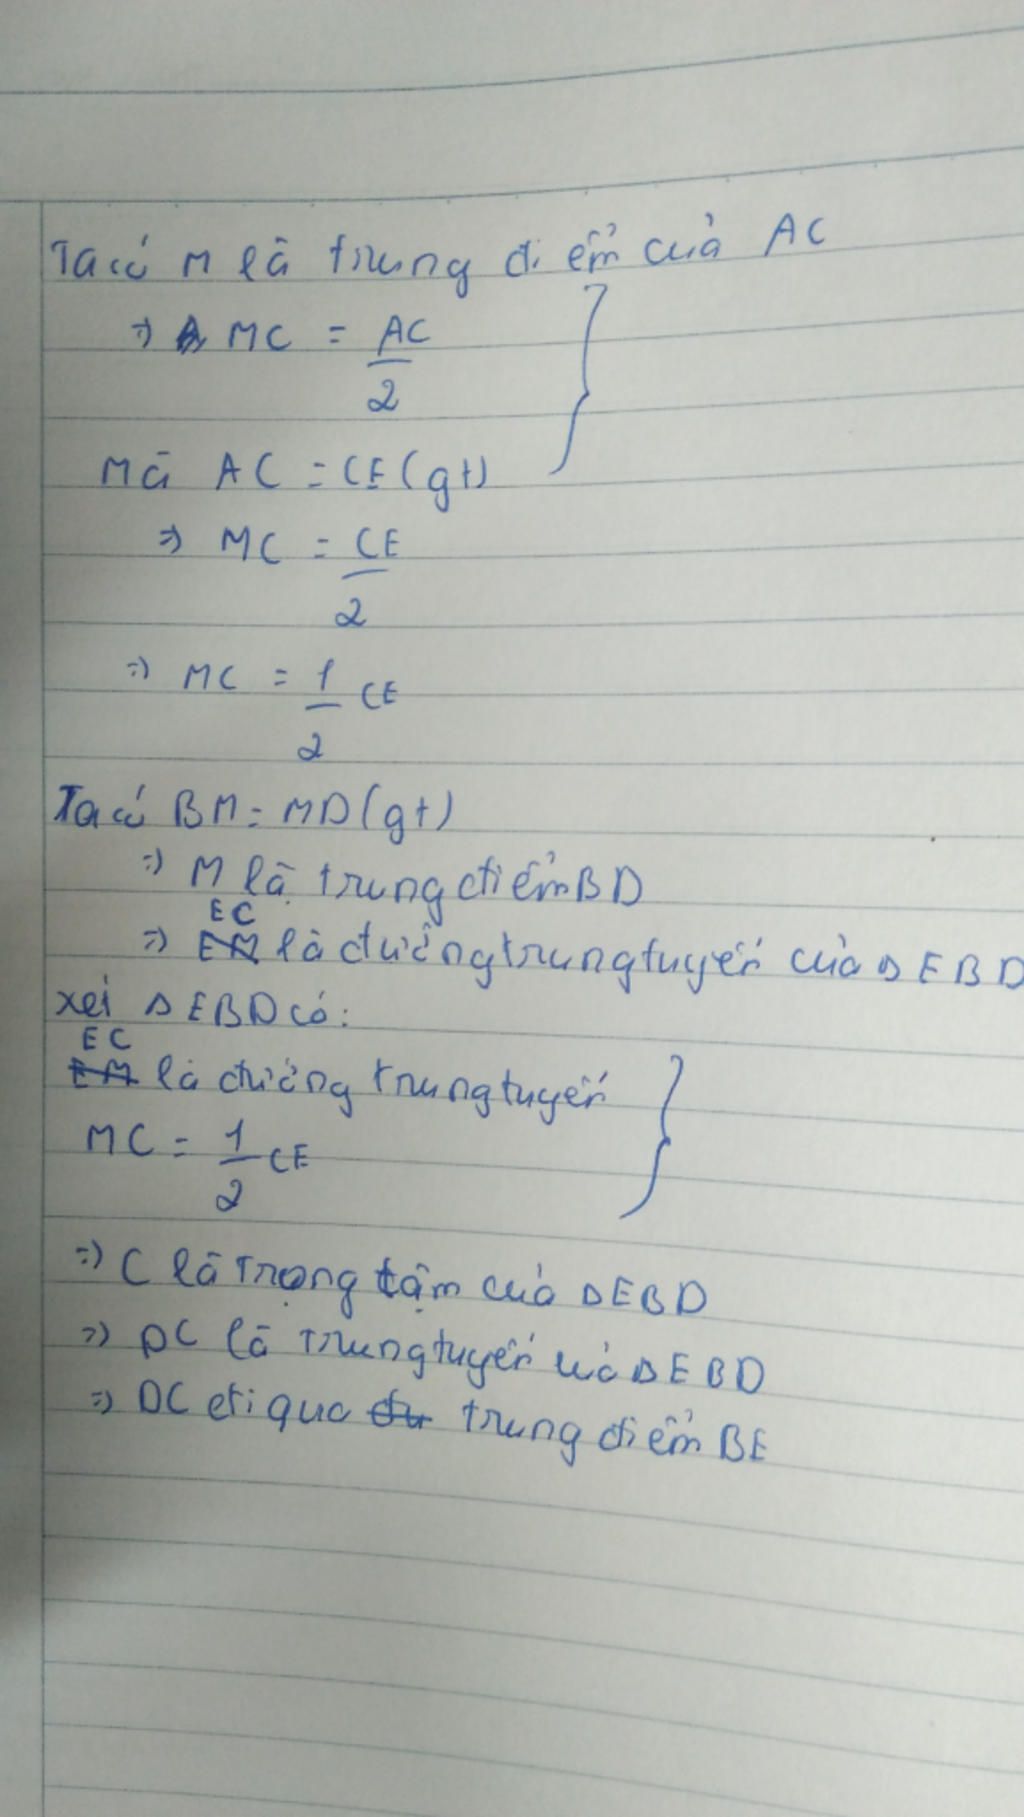 Ta có M là trung điểm của AC
=> MC = AC/2
Mà AC = CE (gt)
=> MC = CE/2
=> MC = 1/2 CE
Ta có BM = MD (gt)
=> M là trung điểm BD
EC
=> EM là đường trung tuyến của Δ EBD
xét Δ EBD có:
EC
EM là đường trung tuyến
MC = 1/2 CE
=> C là trọng tâm của Δ EBD
=> DC là trung tuyến của Δ EBD
=> DC đi qua trung điểm BE